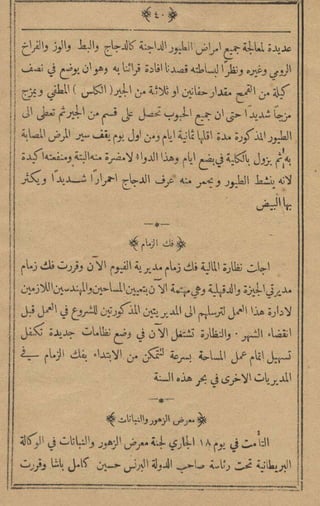 ﴿ ٤٠ ﴾
عديدة لمعالجة جميع امراض الطيور الداجنة كالدجاج والبط والوز والفراخ
الرومي وغيره ونظرًا لبساطته قصدنا افادة قرائنا به وهو ان يوضع في نصف
كيلة من القمح مقدار حفانين او ثلاثة من الجير (الكلس) المطفي ويمزج
مزجًا شديدًا حتى ان جميع الحبوب تحصل على قسم من الجير ثم تعطى الى
الطيور المذكورة مدة اقلها ثمانية ايام ومن اول يوم يقف سير المرض المصابة
به ثم يزول بالكلية في بضع ايام وهذا الدواء لا مضرة منه البتة ومنفعته اكيدة
لانه ينشط الطيور ويحمر منه عرف الدجاج احمرارًا شديدًا ويكثر
بها البيض
﴿ فك الزمام ﴾
اجلت نظارة المالية فك زمام مديرية الفيوم الآن وقررت فك زمام
مديرتي الجيزة والدقهلية وهي مهتمة الآن بتعيين المساحين والمهندسين اللازمين
لادارة هذا العمل لترسلهم الى المديرتين المذكورتين للشروع في العمل قبل
انقضاء الشهر . والنظارة تشتغل الآن في وضع نظامات جديدة تكفل
تسهيل اتمام عمل المساحة بسرعة لتتمكن من الابتداء بفك الزمام في
المديريات الاخرى في بحر هذه السنة
﴿ معرض الزهور والنباتات ﴾
التأمت في يوم ١٨ الجاري لجنة معرض الزهور والنباتات في الوكالة
البريطانية تحت رئاسة صاحب الدولة البرنس حسين كامل باشا وقررت